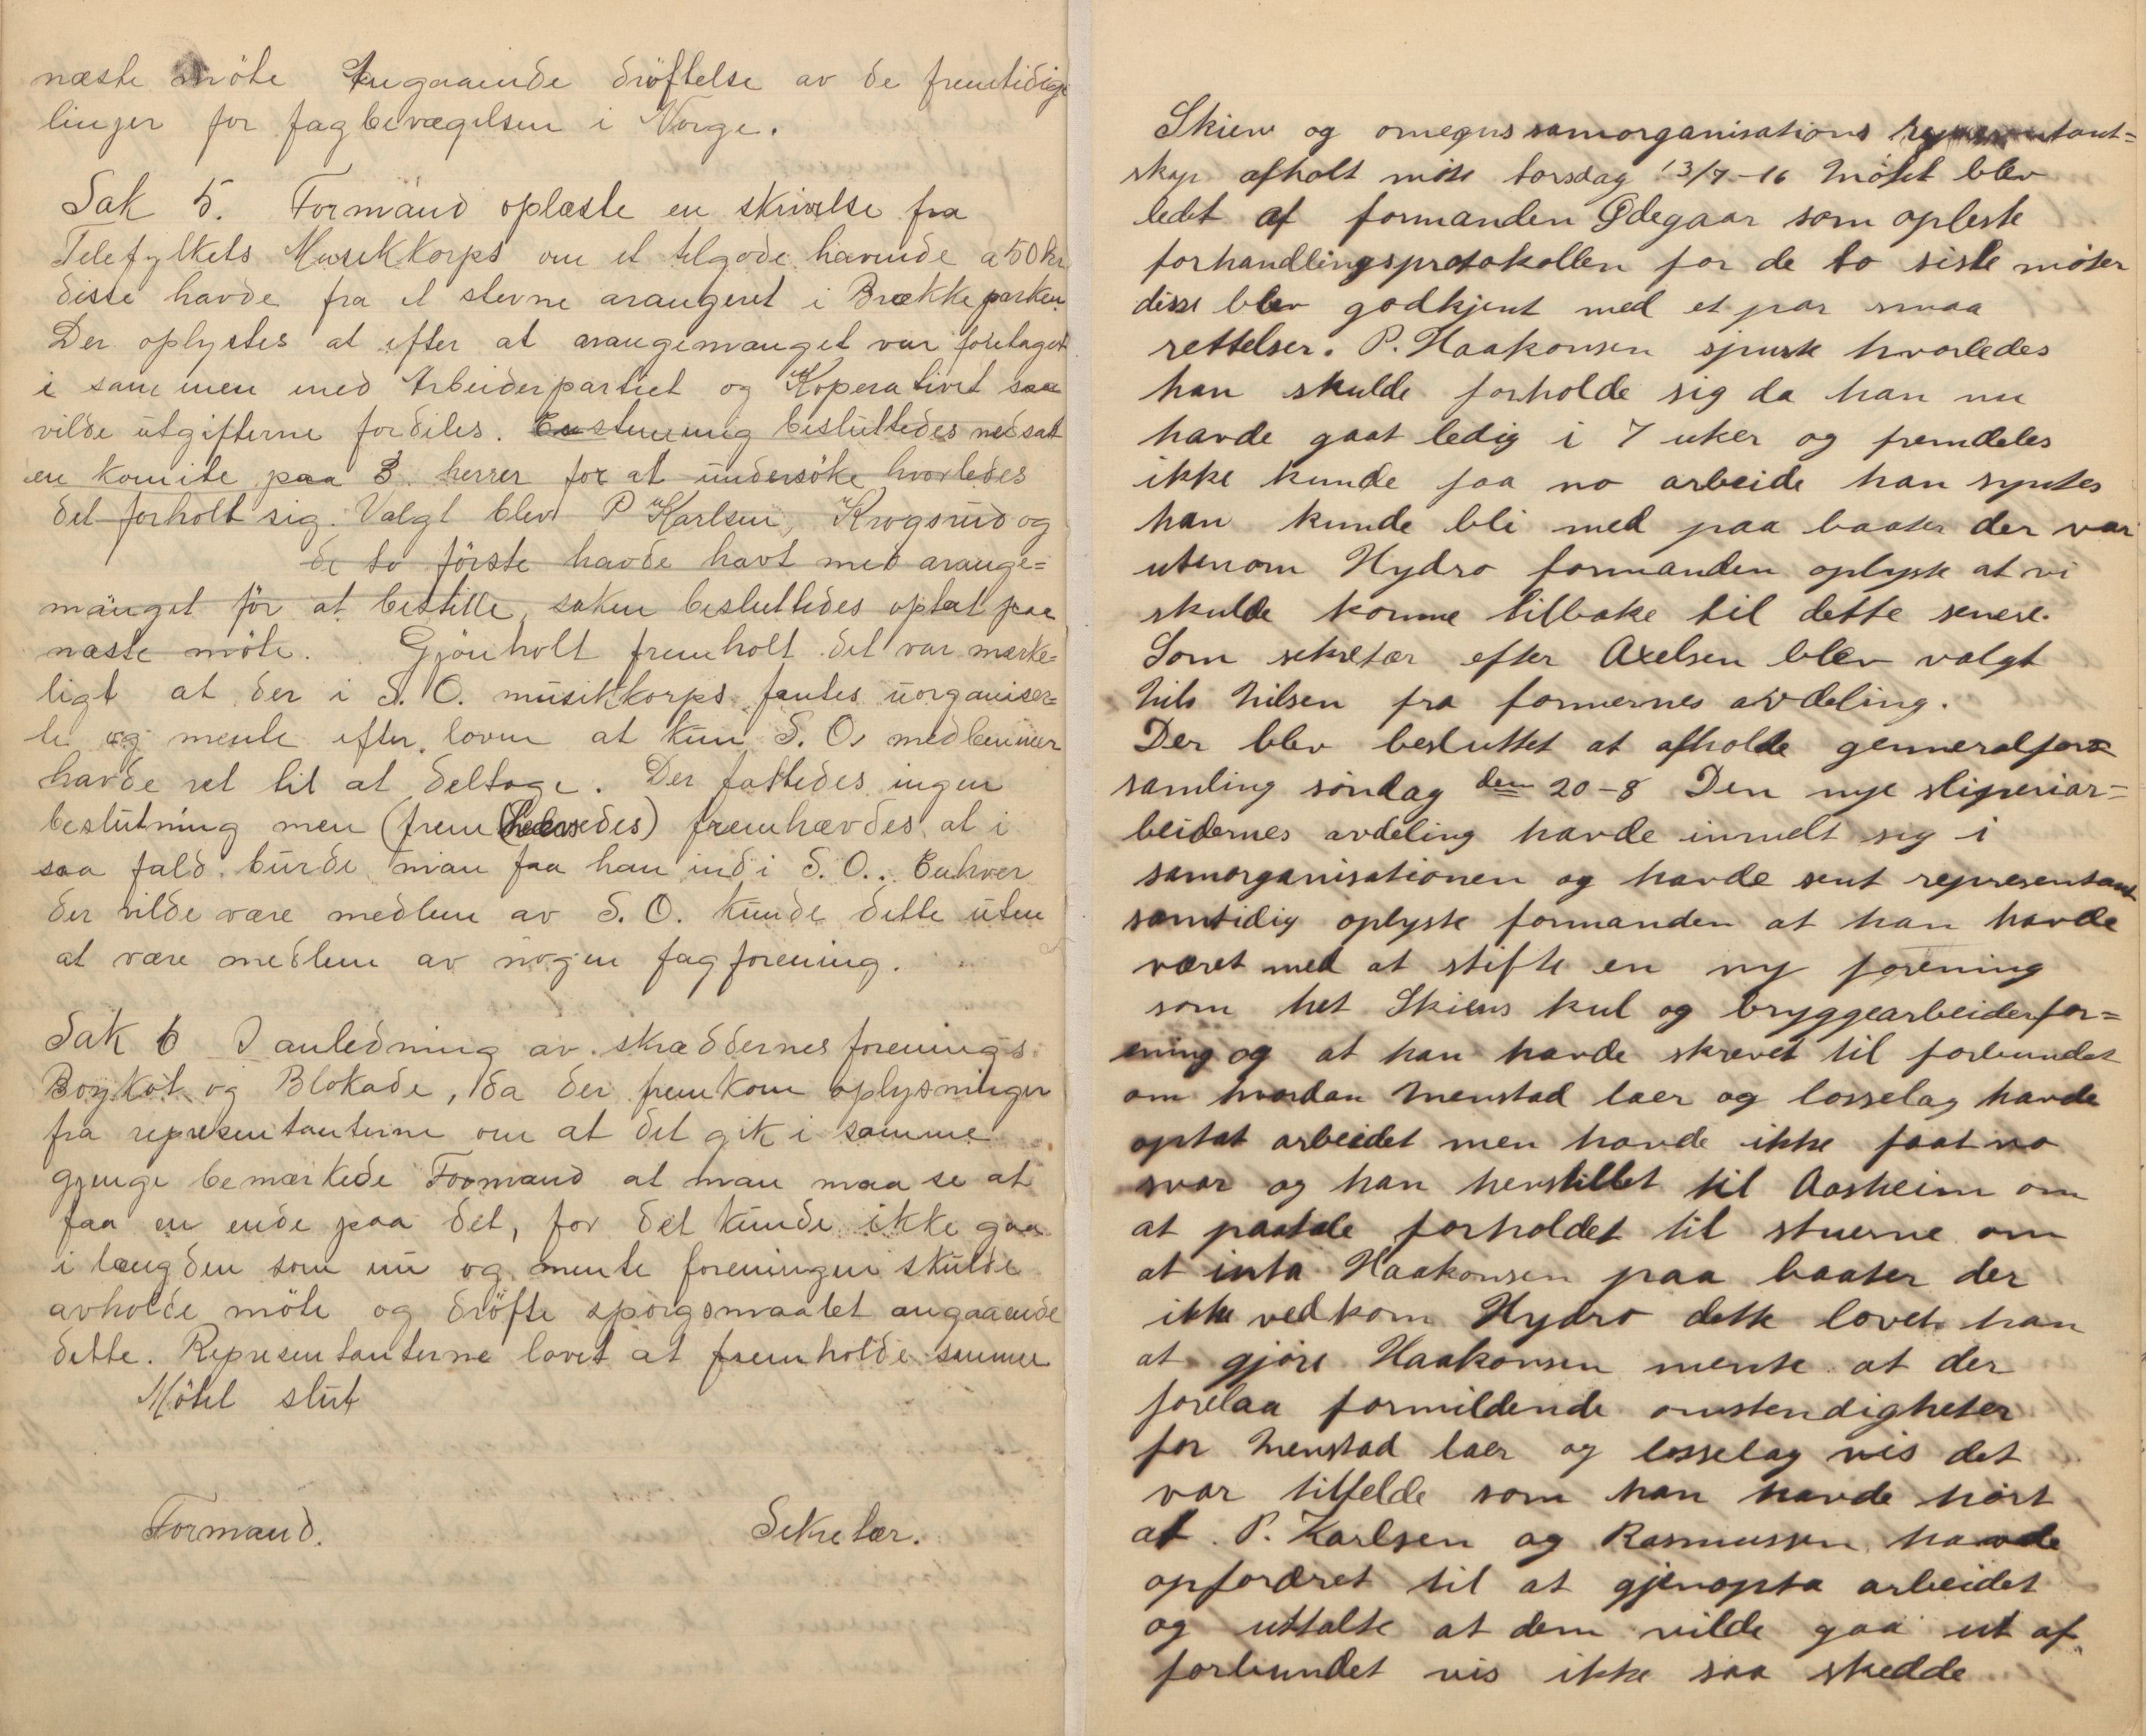 næste möte Angaaende dröftelse av de fremtidige
linjer for fagbevægelsen i Norge.
Sak 5. Formand oplæste en skrivelse fra
Telefylkets Musikkorps om et tilgode havende a 50 kr
disse havde fra et stevne arangeret i Brækkeparken.
Der oplystes at efter at arangemanget var foretaget
i sammen med Arbeiderpartiet og Koperativet saa
vilde utgifterne fordeles. Enstemmig besluttedes nedsatt
en komite paa 3 herrer for at undersöke hvorledes
det forholt sig. Valgt blev P Karlsen, Krogsrud og
de to förste havde havt med arange=
manget för at bestille saken besluttedes optat paa
næste möte. Gjönholt fremholt det var mærke=
ligt at der i S. O. musikkorps fantes uorganiser=
te og mente efter loven at kun S. Os medlemmer
havde ret til at deltage. Der fattedes ingen
beslutning men (frem hævedes) fremhævdes at i
saa fald burde man faa han ind i S. O.. Enhver
der vilde være medlem av S. O. kunde dette uten
at være medlem av nogen fagforening.
Sak 6 I anledning av skræddernes forenings
Boykot og Blokade, da der fremkom oplysninger
fra representanterne om at det gik i samme
gjenge bemærkede Formand at man maa se at
faa en ende paa det, for det kunde ikke gaa
i længden som nu og mente foreningen skulde
avholde möte og dröfte spörgsmaalet angaaende
dette. Representanterne lovet at fremholde samme
Mötet slut
Formand. Sekretær.
Skien og omegns samorganisations representant=
skap afholt möte torsdag 13/7-16 Mötet blev
ledet af formanden Ödegaar som opleste
forhandlingsprotokollen for de to siste möter
disse blev godkjent med et par smaa
rettelser. P. Haakonsen spurte hvorledes
han skulde forholde sig da han nu
havde gaat ledig i 7 uker og fremdeles
ikke kunde faa no arbeide han syntes
han kunde bli med paa baater der var
utenom Hydro formanden oplyste at vi
skulde komme tilbake til dette senere.
Som sekretær efter Axelsen blev valgt
Nils Nilsen fra formernes avdeling.
Der blev besluttet at afholde genneralfor=
samling söndag den 20-8 Den nye sliperiar=
beidernes avdeling havde inmelt sig i
samorganisationen og havde sent representant
samtidig oplyste formanden at han havde
været med at stifte en ny forening
som het Skiens kul og bryggearbeiderfor=
ening og at han havde skrevet til forbundet
om hvordan Menstad laer og losselag havde
optat arbeidet men havde ikke faat no
svar og han henstillet til Aasheim om
at paatale forholdet til stuerne om
at inta Haakonsen paa baater der
ikke vedkom Hydro dette lovet han
at gjöre Haakonsen mente at der
forelaa formildende omstendigheter
for Menstad laer og losselag vis det
var tilfelde som han havde hört
at P. Karlsen og Rasmussen havde
opfordret til at gjenopta arbeidet
og uttalte at dem vilde gaa ut af
forbundet vis ikke saa skedde